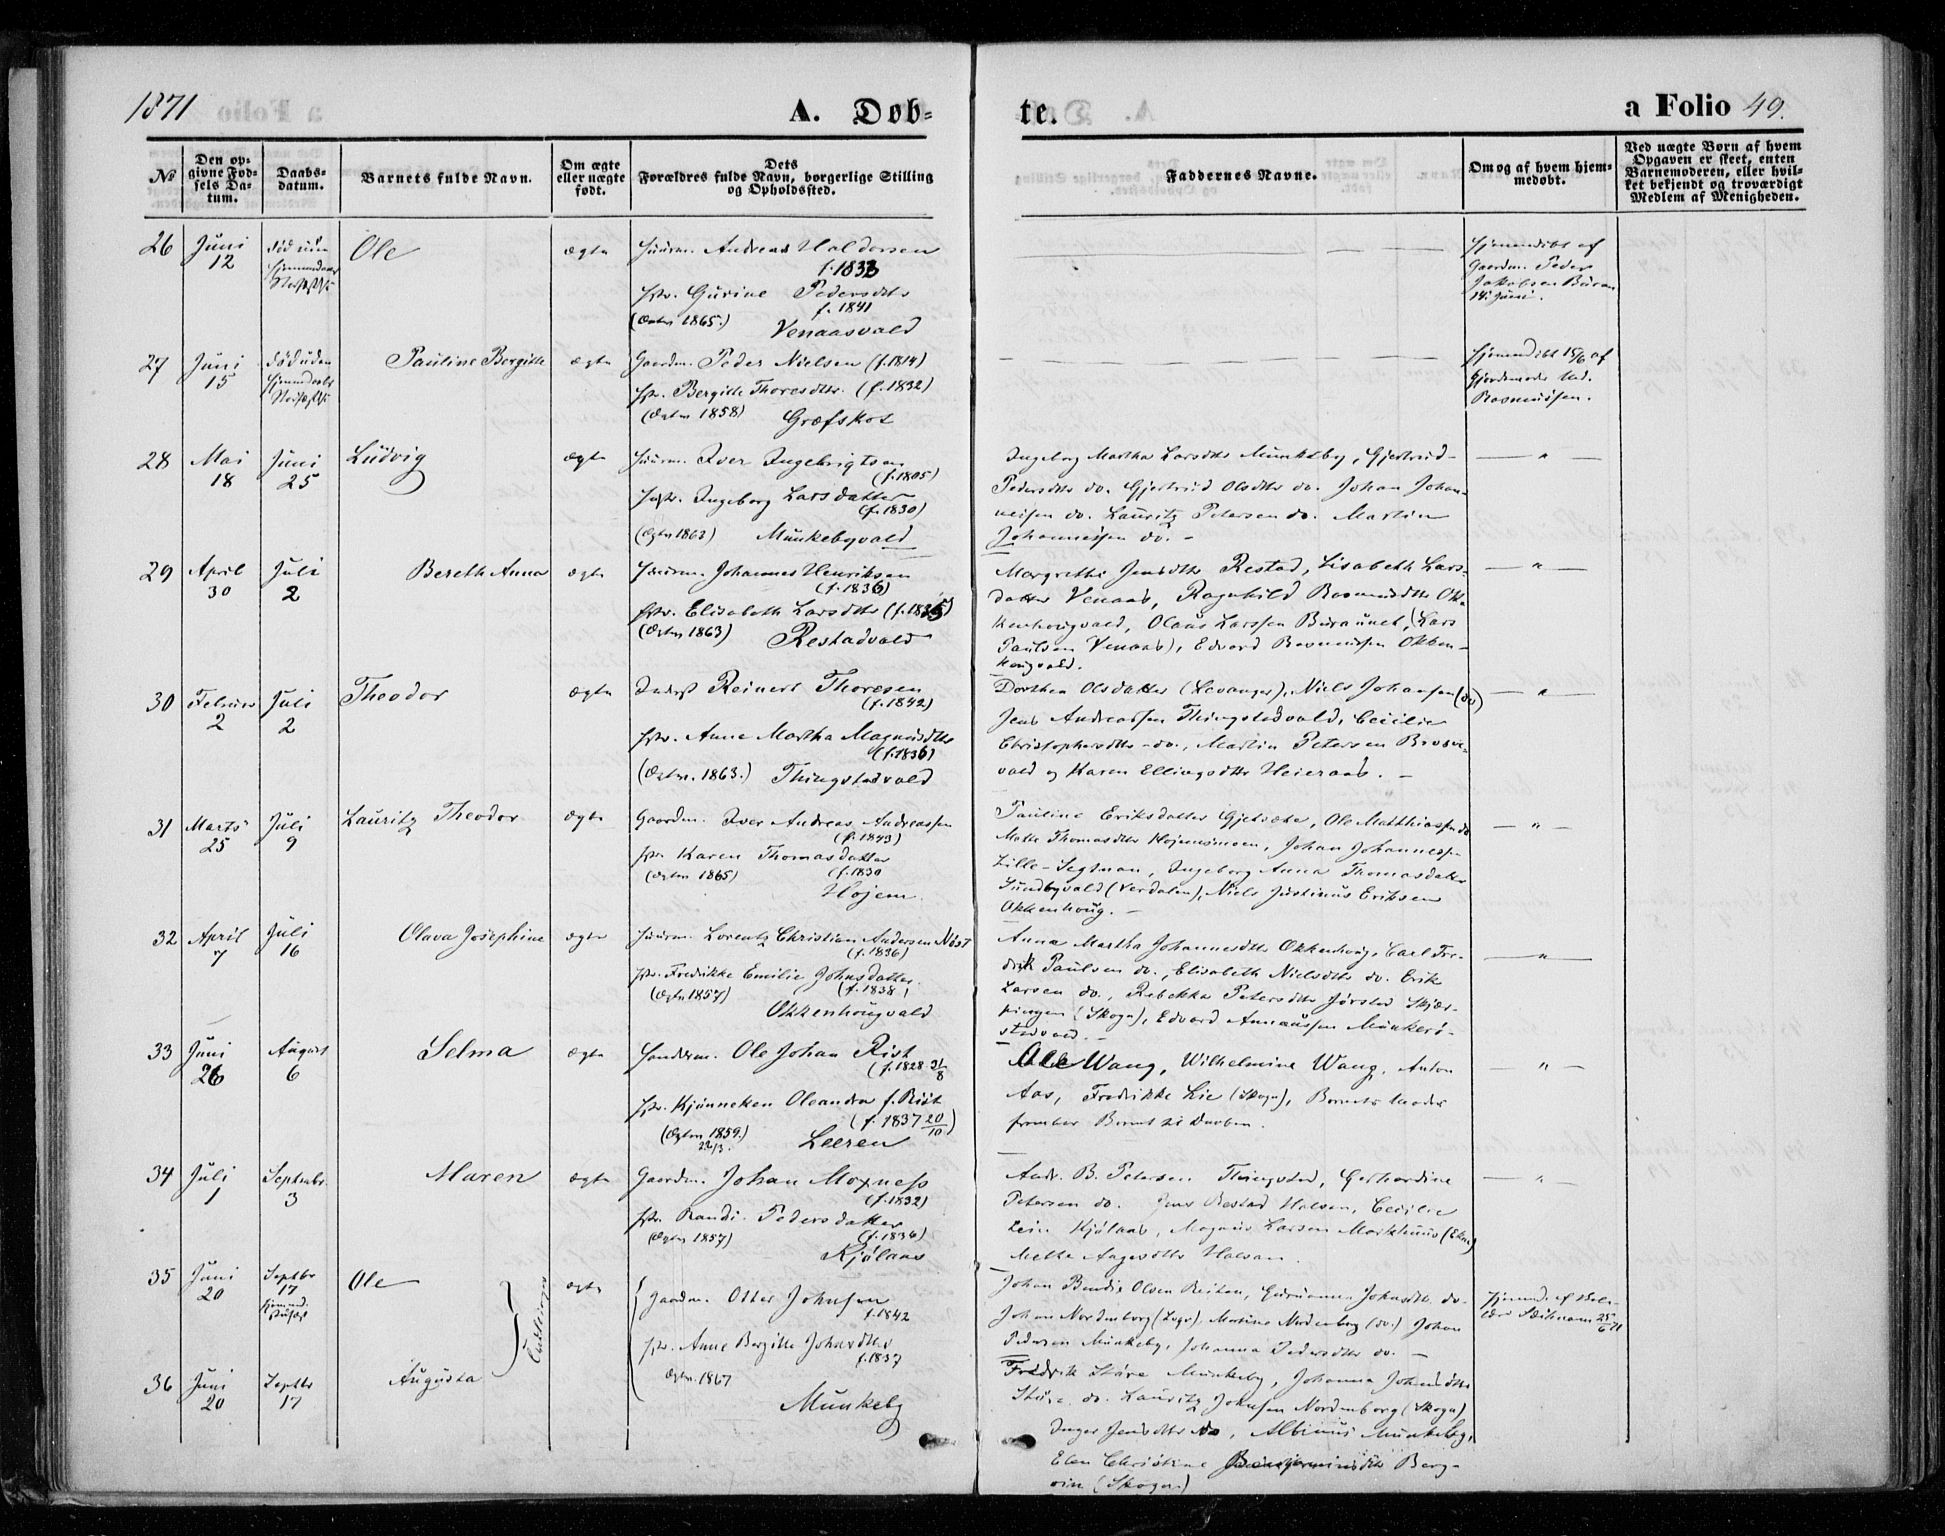 1871
A. Døb-
te.
a Folio 49.
№
Den op-
givne Fød-
sels Da-
tum.
Daabs-
datum.
Barnets fulde Navn.
Om ægte
eller uægte
født.
Dets
Forældres fulde Navn, borgerlige Stilling
og Opholdssted.
Faddernes Navne.
Om og af hvem hjem-
medøbt.
Ved uægte Børn af hvem
Opgaven er skeet, enten
Barnemoderen, eller hvil-
ket bekjendt og troværdigt
Medlem af Menigheden.
26 Juni
12
død uden
Ole
ægte
Huusm. Andreas Haldorsen
f. 1833
Hstr. Gurine Pedersdtr
f. 1841
(Ægtev. 1865.) Venaasvald
Hjemmedøbt af
Gaardm. Peder
Jakobsen Buran
14. Juni.
27 Juni
15
død uden
Pauline Bergitte
ægte
Gaardm. Peder Nielsen (f. 1814)
Hstr. Bergitte Thoresdtr. (f. 1832)
(Ægtev 1858) Græfskot
Hjemmedøbt 15/6 af
Gjordemoder Md.
Rasmussen.
28 Mai
18
Juni
25
Ludvig
ægte
Huusm. Iver Ingebrigtsen
(f. 1805)
Hustr. Ingeborg Larsdatter
(f. 1830)
(Ægtev 1863) Munkebyvald
Ingeborg Martha Larsdtr Munkeby, Gjertrud
Pedersdtr do. Gjertrud Olsdtr do. Johan Johan-
nesen do. Lauritz Petersen do. Martin
Johannesen do. -
29 April
30
Juli
2
Bereth Anna
ægte
Huusm. Johannes Henriksen
(f. 1836)
Hstr. Elisabeth Larsdtr (f. 1835)
(Ægtev 1863) Restadvald
Margrethe Jensdtr Restad, Lisabeth Lars-
datter Venaas, Ragnhild Rasmusdtr Ok-
kenhougvald, Olaus Larssen Buraunet, (Lars
Paulsen Venaas), Edvard Rasmussen Okken-
hougvald.
30 Februar
2
Juli
2
Theodor
ægte
Inderst Reinert Thoresen
(f. 1842)
Hstr. Anne Martha Magnusdtr
(f. 1836)
(Ægtev. 1863.) Thingstadvald
Dorthea Olsdatter (Levanger), Niels Johansen (do)
Jens Andreassen Thingstadvald, Cecilie
Christophersdtr do., Martin Petersen
vald og Karen Ellingsdtr Heieraas. -
31 Marts
25
Juli
9
Lauritz Theodor
ægte
Gaardm. Iver Andreas Andreassen
(f. 1843)
Hstr Karen Thomasdatter
(Ægtev 1865) (f. 1830
Højem.
Pauline Eriksdatter, Ole Matthiassen do
Mette Thomasdtr Højemsmoen, Johan Johannessen
Lille-Segtnan, Ingeborg Anna Thomasdatter
Sundbyvald (Verdalen), Niels Justinus Eriksen
Okkenhoug. -
32 April
7
Juli
16
Olava Josephine
ægte
Huusm. Lorentz Christian Andersen Nøst
(f. 1836)
Hstr. Fredrikke Emilie Johnsdatter
(Ægtev 1857) (f. 1838)
Okkenhougvald
Anna Martha Johannesdtr Okkenhoug, Carl Fre-
drik Paulsen do., Elisabeth Nielsdtr do. Erik
Larsen do., Rebekka Petersdtr Jørstad Skjær-
pingen (Skogn), Edvard Munkerø-
stadvald. -
33 Juni
26
August
6
Selma
ægte
Handelsm. Ole Johan Rist
(f. 1828 31/8
Hstr. Kjønneken Oleandra f. Rist
(f. 1837 20/10)
(Ægtev 1859.)
Leeren
Ole Wang, Wilhelmine Wang, Anton
Aas, Fredrikke Lie (Skogn), Barnets Moder
frembar Barnet til Daaben.
34 Juli
1
Septembr.
3
Maren
ægte
Gaardm. Johan Moxness
(f. 1832)
Hstr. Randi Pedersdatter
(Ægtev 1857) (f. 1836)
Kjølaas
Andr. B. Petersen Thingstad, Gerhardine
Petersen do. Jens Restad Halsan, Cecilie
Lein Kjølaas, Magnus Larsen
Mette Aagesdtr Halsan.
35 Juni
20
Septbr
17
Ole
Tvillinger
ægte
Gaardm. Otter Johnsen
f. 1842
Hstr. Anne Bergitte Johnsdtr
f. 1837
Ægtev. 1867
Munkeby
Johan Bendix Olsen Reiten, Johnsdtr. do.
Johan Nordenborg, Martine Nordenborg (do.) Johan
Pedersen Munkeby, Johanna Pedersdtr do. -
36 Juni
20
Septbr
17
Augusta
Fredrik Støre Munkeby, Johanna Johnsdtr
Støre do. Lauritz Johnsen Nordenborg (Skogn)
Inger Jensdtr do, Albinus Munkeby,
Elen Christine Benjaminsdtr Berg-
(Skogn)